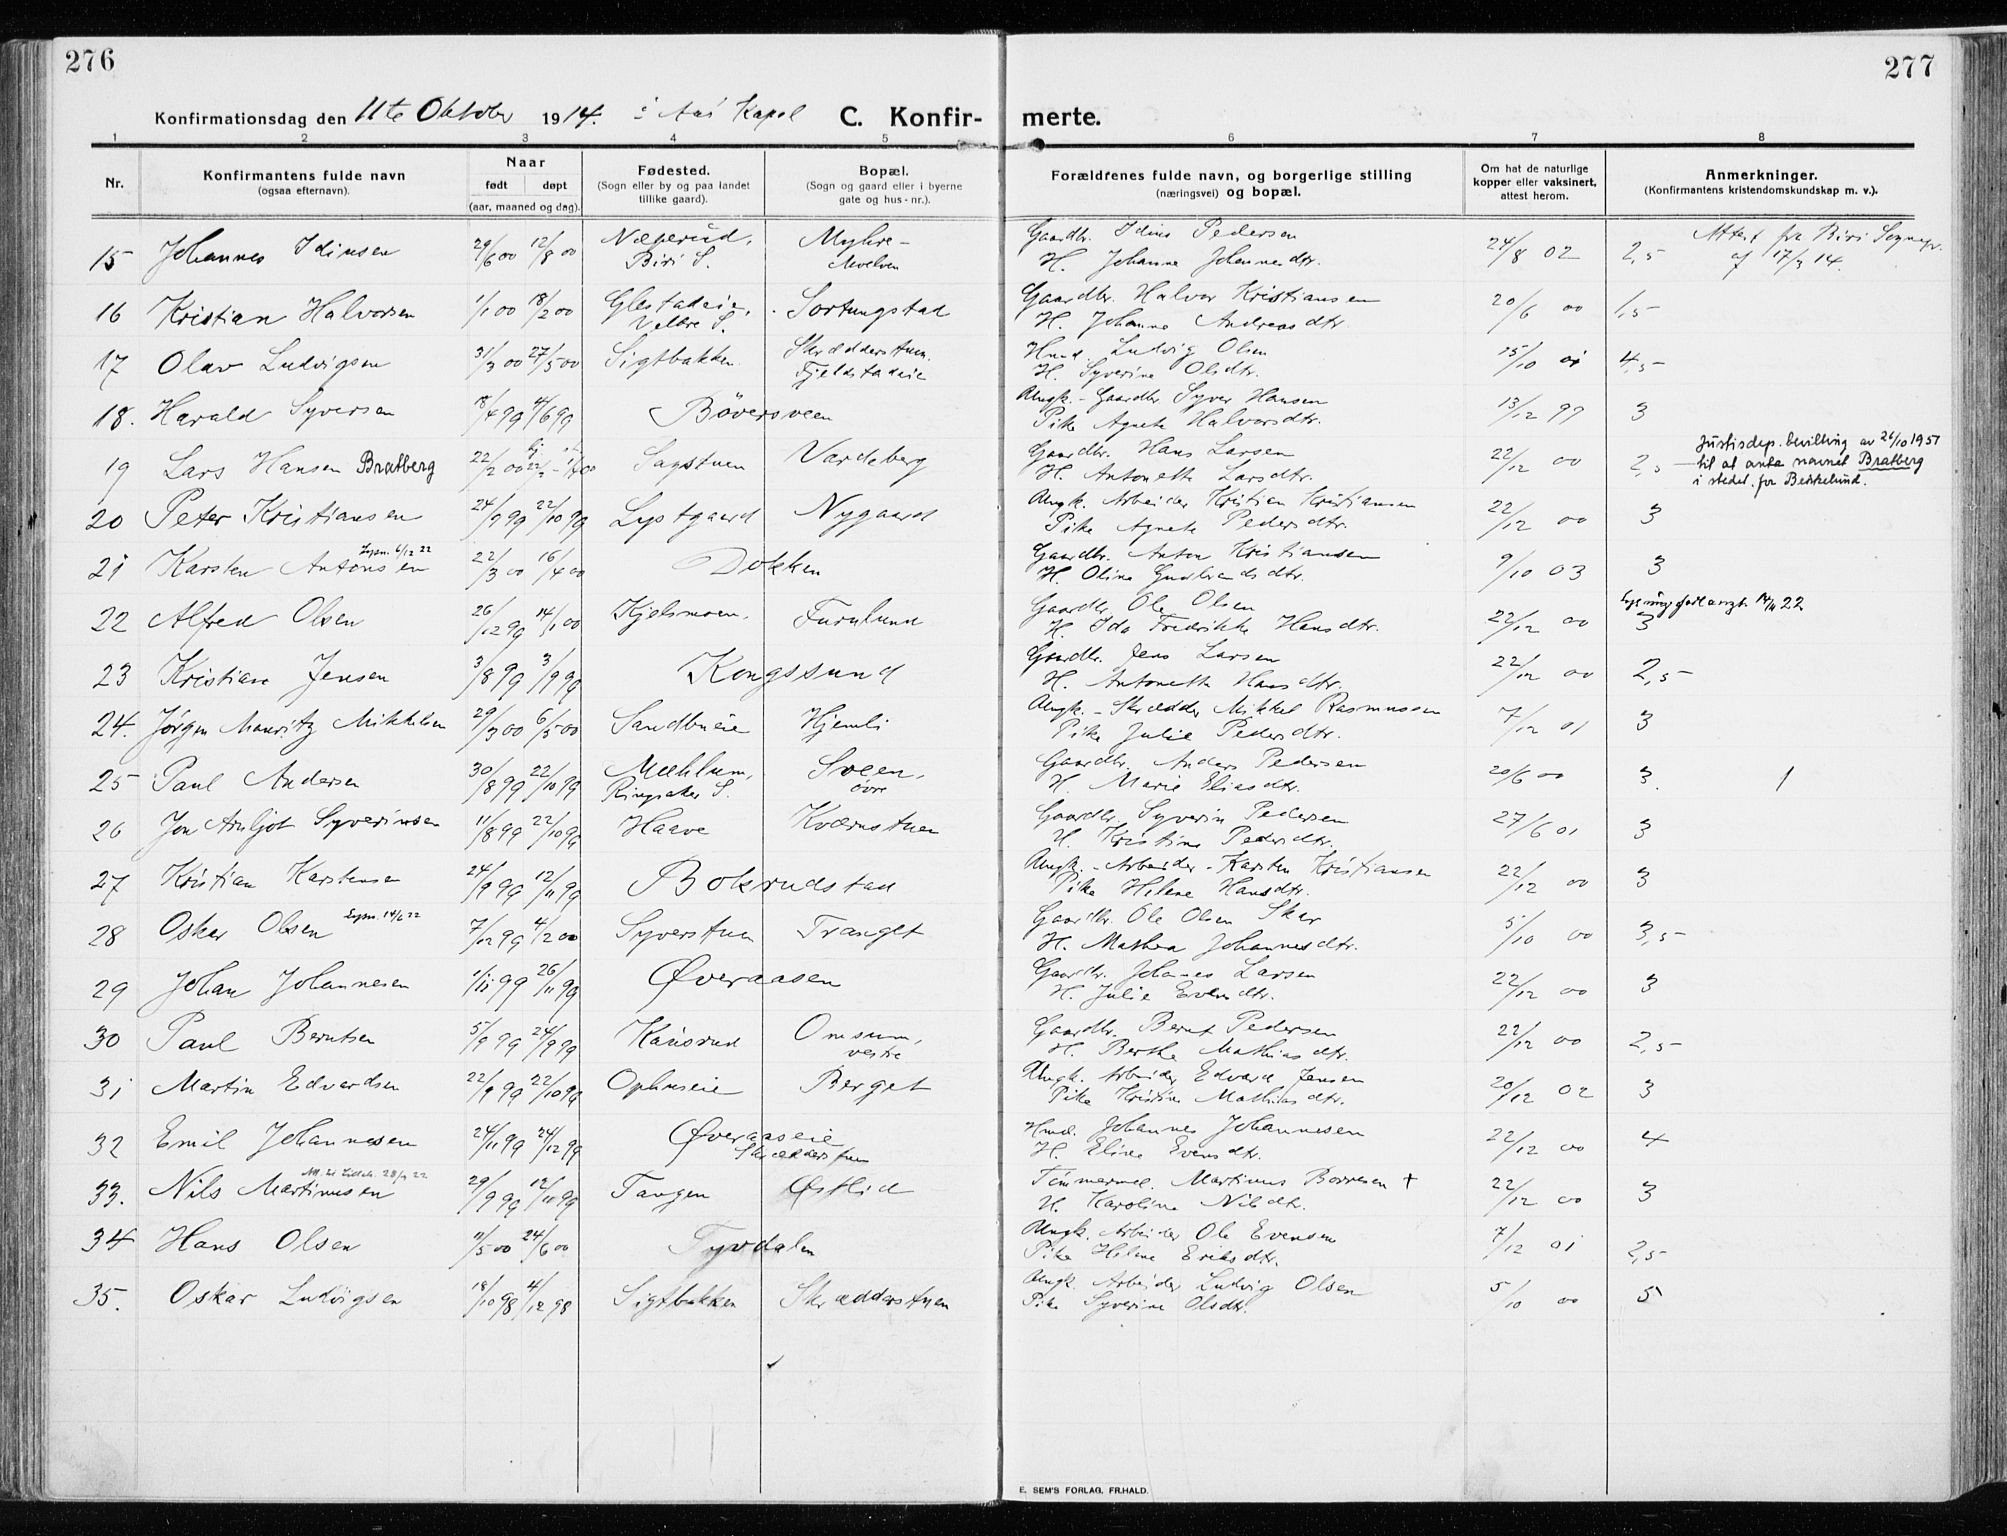 276
277
Konfirmationsdag den 11te Oktober 1914. i Aas Kapel C. Konfir- merte.
1 2 3 4 5 6 7 8
Nr.
Konfirmantens fulde navn
(ogsaa efternavn).
Naar
født døpt
(aar, maaned og dag).
Fødested.
(Sogn eller by og paa landet
tillike gaard).
Bopæl.
(Sogn og gaard eller i byerne
gate og hus-nr.).
Forældrenes fulde navn, og borgerlige stilling
(næringsvei) og bopæl.
Om hat de naturlige
kopper eller vaksinert,
attest herom.
Anmerkninger.
(Konfirmantens kristendomskundskap m. v.).
15 Johannes Idinsen 29/6 00 12/8 00 Næperud, Biri S. Myhre- Gaardbr. Idius Pedersen
H. Johanne Johannesdtr. 24/8 02 2,5 Attest fra Biri Sognepr. af 17/3 14.
16 Kristian Halvorsen 1/1 00 18/2 00 Glestadeie, Veldre S. Sortungstad Gaardbr. Halvor Kristiansen
H. Johanne Andreasdtr. 20/6 00 1,5
17 Olav Ludvigsen 31/3 00 27/5 00 Sigtbakken Skrædderstuen Fjeldstadeie Hmd. Ludvig Olsen
H. Syverine Olsdtr. 15/10 01 4,5
18. Harald Syversen 18/4 99 4/6 99 Bøversveen Ungk. - Gaardbr. Syver Hansen
Pike Agnete Halvorsdtr. 13/12 99 3
19 Lars Hansen Bratberg 22/2 00 Sagstuen Vardeberg Gaardbr. Hans Larsen
H. Antonette Larsdtr. 22/12 00 2,5 Justisdep. bevilling av 26/10 1951
til at anta navnet Bratberg
i stedet for Berkelund.
20 Peter Kristiansen 24/9 99 22/10 99 Lystgaard Nygaard Ungk. Arbeider Kristian Kristiansen
Pike Agnete Pedersdtr. 22/12 00 3
21 Karsten Antonsen Lysn. 6/12 22 22/3 00 16/4 00 Dokken Gaardbr. Anton Kristiansen
H. Oline Gudbrandsdtr. 9/10 03 3
22 Alfred Olsen 26/12 99 14/1 00 Kjelsmoen. Furulund Gaardbr. Ole Olsen
H. Ida Fredrikke Hansdtr. 22/12 00 3 22
23 Kristian Jensen 3/8 99 3/9 99 Kongssund Gaardbr. Jens Larsen
H. Antonette Hansdtr. 22/12 00 2,5
24. Jørgen Mauritz Mikkelsen 29/3 00 6/5 00 Sandbueie Hjemli Ungk. - Skrædder Mikkel Rasmussen
Pike Julie Pedersdtr. 7/12 01 3
25 Paul Andersen 30/8 99 22/10 99 Mæhlum, Ringsaker S. Sveen, øvre Gaardbr. Anders Pedersen
H. Marie Eliasdtr. 20/6 00 3. 1
26 Jon Arnljot Syverinsen 11/8 99 22/10 99 Haave Kværnstuen Gaardbr. Syverin Pedersen
H. Kristine Pedersdtr. 27/6 01 3
27 Kristian Karstensen 24/9 99 12/11 99 Bokrudstad Ungk. - Arbeider - Karsten Kristiansen
Pike Helene Hansdtr. 22/12 00 3
28 Oskar Olsen Lysn. 14/6 22 7/12 99 4/2 00 Syverstuen Tranget Gaardbr. Ole Olsen Skar
H. Mathea Johannesdtr. 5/10 00 3,5
29 Johan Johannesen 1/11 99 26/11 99 Øveraasen Gaardbr. Johannes Larsen
H. Julie Evensdtr. 22/12 00 3
30 Paul Berntsen 5/9 99 24/9 99 Kausrud Onsum, vestre Gaardbr. Bernt Pedersen
H. Berthe Mathiasdtr. 22/12 00 2,5
31 Martin Edvardsen 22/9 99 22/10 99 Ophuseie Berget Ungk. Arbeider Edvard Jensen
Pike Kristine Mathiasdtr. 20/12 02 3
32 Emil Johannesen 24/11 99 24/12 99 Øveraaseie Skrædderstuen Hmd. Johannes Johannesen
H. Eline Evensdtr. 22/12 00 4
33. Nils Martinusen 29/9 99 12/11 99 Tangen Østlid Tømmermd. Martinus Borresen +
H. Karoline Nilsdtr. 22/12 00 3
34 Hans Olsen 11/5 00 24/6 00 Tyvdalen Ungk. Arbeider Ole Evensen
Pike Helene Eriksdtr. 7/12 01 2,5
35. Oskar Ludvigsen 18/10 98 4/12 98 Sigtbakken Skrædderstuen Ungk. Arbeider Ludvig Olsen
Pike Syverine Olsdtr. 5/10 00 5
E. SEM'S FORLAG. FR.HALD.